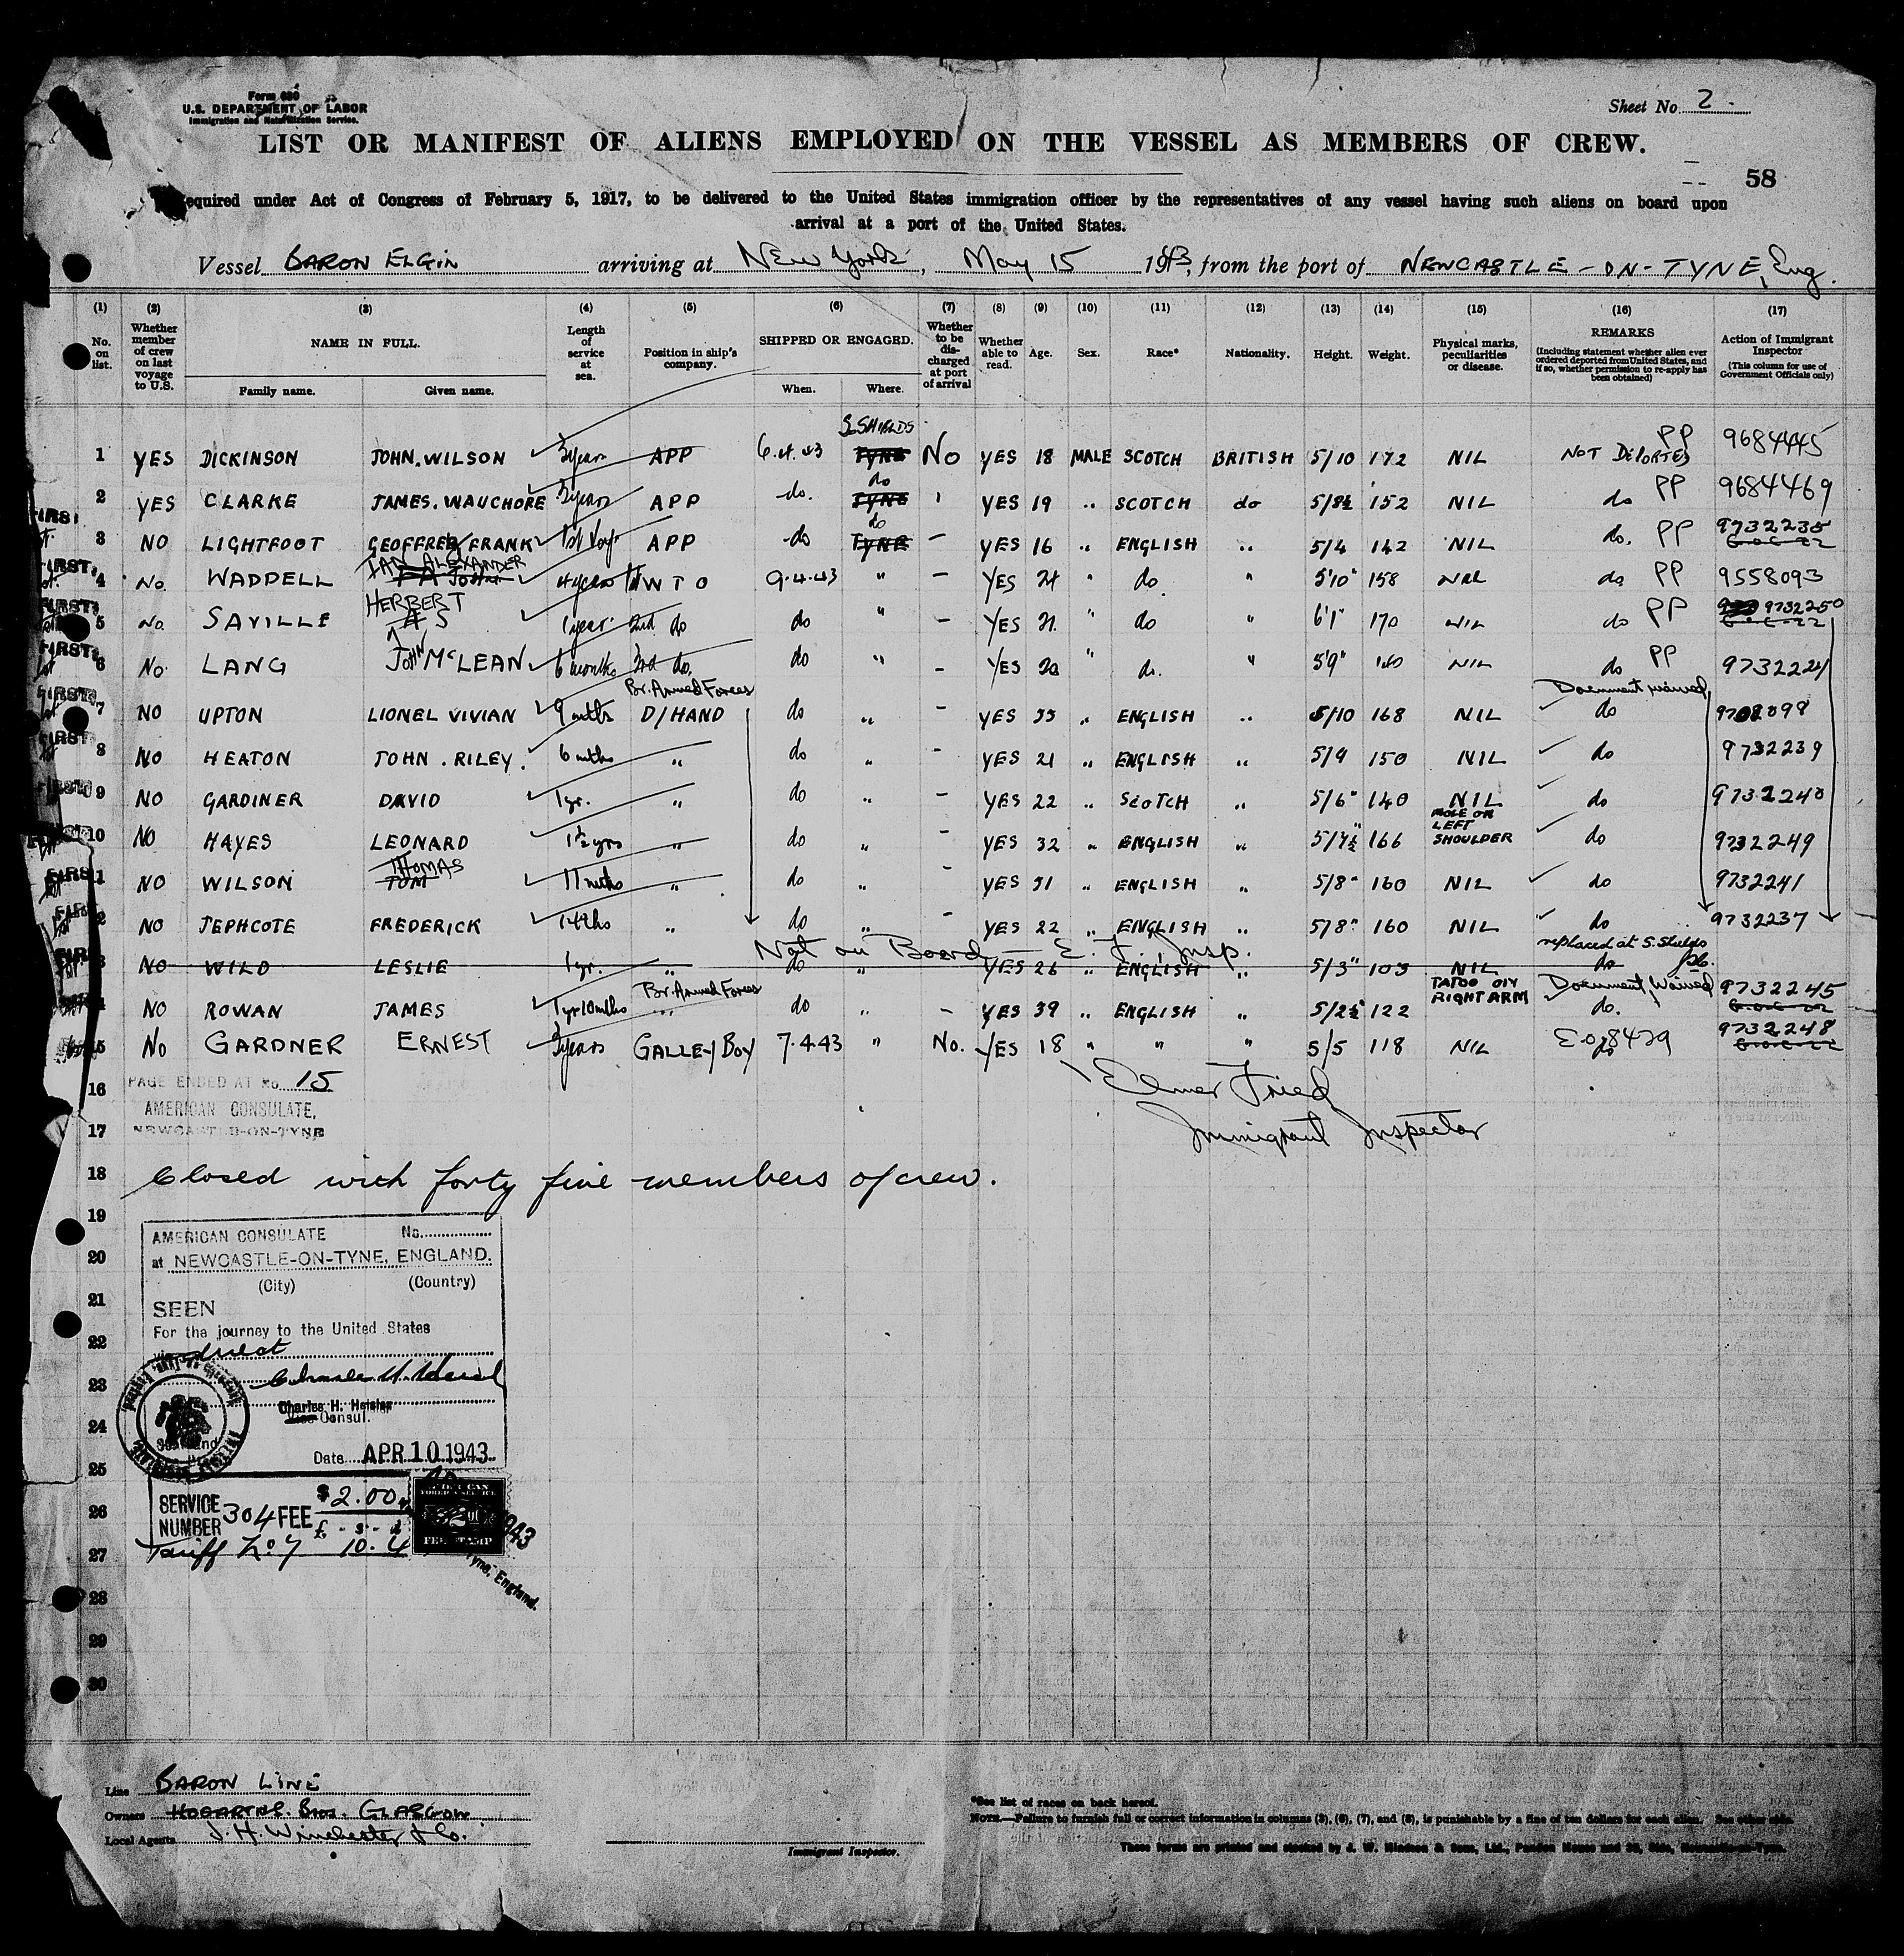 Form 680
U.S. DEPARTMENT OF LABOR
Immigration and Naturalization Service.
Sheet No. 2.
LIST OR MANIFEST OF ALIENS EMPLOYED ON THE VESSEL AS MEMBERS OF CREW.
58
Required under Act of Congress of February 5, 1917, to be delivered to the United States immigration officer by the representatives of any vessel having such aliens on board upon
arrival at a port of the United States.
Vessel BARON ELGIN arriving at New York, May 15 1943, from the port of NEWCASTLE-ON-TYNE, Eng.
(1) (2) (3) (4) (5) (6) (7) (8) (9) (10) (11) (12) (13) (14) (15) (16) (17)
No. on list. Whether member of crew on last voyage to U.S. NAME IN FULL. Family name. Given name. Length of service at sea. Position in ship's company. SHIPPED OR ENGAGED. When. Where. Whether to be discharged at port of arrival Whether able to read. Age. Sex. Race* Nationality. Height. Weight. Physical marks, peculiarities or disease. REMARKS (Including statement whether alien ever ordered deported from United States, and if so, whether permission to re-apply has been obtained) Action of Immigrant Inspector (This column for use of Government Officials only)
S. SHIELDS
1 YES DICKINSON JOHN. WILSON 3 years APP 6.4.43 TYNE No YES 18 MALE SCOTCH BRITISH 5/10 172 NIL NOT DEPORTED PP 9684445
2 YES CLARKE JAMES. WAUCHORE 3 years APP do. do TYNE YES 19 " SCOTCH do 5/8½ 152 NIL do PP 9684469
3 NO LIGHTFOOT GEOFFREY FRANK 1st Voy. APP do do TYNE - YES 16 " ENGLISH " 5/4 142 NIL do. PP 9732235
4 No. WADDELL IAN ALEXANDER 4 years 1st W T O 9.4.43 " - YES 21 " do " 5'10" 158 NIL do PP 9558093
5 No. SAVILLE HERBERT S 1 year. 2nd do do " - YES 21. " do " 6'1" 170 NIL do PP 9732250
6 No. LANG JOHN McLEAN 6 months 3rd do. do " - YES 20 " do. " 5'9" 140 NIL do PP 9732221
Br. Armed Forces Document waived
7 NO UPTON LIONEL VIVIAN 9 mths D/HAND do " - YES 33 " ENGLISH " 5/10 168 NIL do 9708098
8 NO HEATON JOHN. RILEY. 6 mths " do " - YES 21 " ENGLISH " 5/9 150 NIL do 9732239
9 NO GARDINER DAVID 1 yr. " do " - YES 22 " SCOTCH " 5/6" 140 NIL do 9732240
10 NO HAYES LEONARD 1½ yrs " do " - YES 32 " ENGLISH " 5/7½ 166 MOLE ON LEFT SHOULDER do 9732249
11 NO WILSON THOMAS TOM 11 mths " do " - YES 31 " ENGLISH " 5/8" 160 NIL do 9732241
NO JEPHCOTE FREDERICK " do " - YES 22 " ENGLISH " 5/8" 160 NIL do 9732237
Not on Board - E. F., Insp. replaced at S. Shields
NO WILD LESLIE 1 yr. " do " YES 26 " ENGLISH " 5/3" 103 NIL do
Br. Armed Forces Document Waived
NO ROWAN JAMES 1 yr 10 mths " do " - YES 39 " ENGLISH " 5/2½ 122 TATOO ON RIGHT ARM do. 9732245
15 No GARDNER ERNEST 3 years GALLEY BOY 7.4.43 " No. YES 18 " " " 5/5 118 NIL do 9732248
16 PAGE ENDED AT No. 15
Elmer Fried
AMERICAN CONSULATE,
17 NEWCASTLE-ON-TYNE
Immigrant Inspector
18 Closed with forty five members of crew.
19
AMERICAN CONSULATE No.
20 at NEWCASTLE-ON-TYNE, ENGLAND.
(City) (Country)
21 SEEN
22 For the journey to the United States
direct
23
Charles H. Heisler
24 Vice Consul.
Date APR 10 1943
25
26 SERVICE NUMBER 304 FEE $2.00
£ - s - d
27 Tariff No 7 10.4
Tyne, England.
28
29
30
Line BARON LINE
Owners HOGARTHS. Bros. GLASGOW
Local Agents J. H. Winchester & Co.
Immigrant Inspector.
*See list of races on back hereof.
NOTE.—Failure to furnish full or correct information in columns (3), (6), (7), and (8), is punishable by a fine of ten dollars for each alien. See other side.
These forms are printed and stocked by J. W. Hindson & Sons, Ltd.,